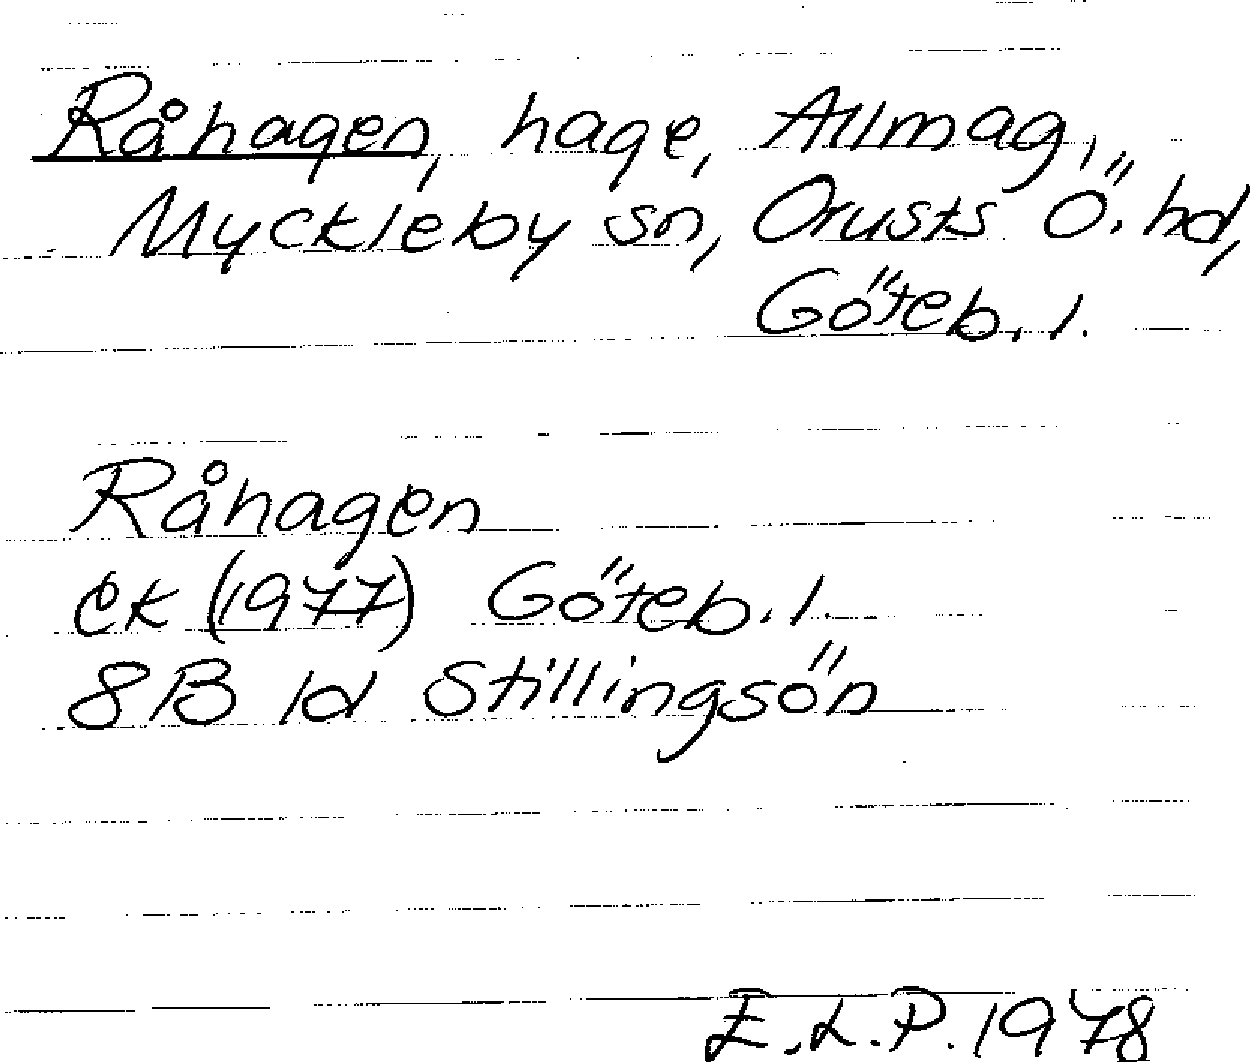 Råhagen, hage, Allmag,
Myckleby sn, Orusts Ö. hd,
Göteb. l.
Råhagen
EK (1977) Göteb. l.
8B 1d Stillingsön
E.L.P. 1978